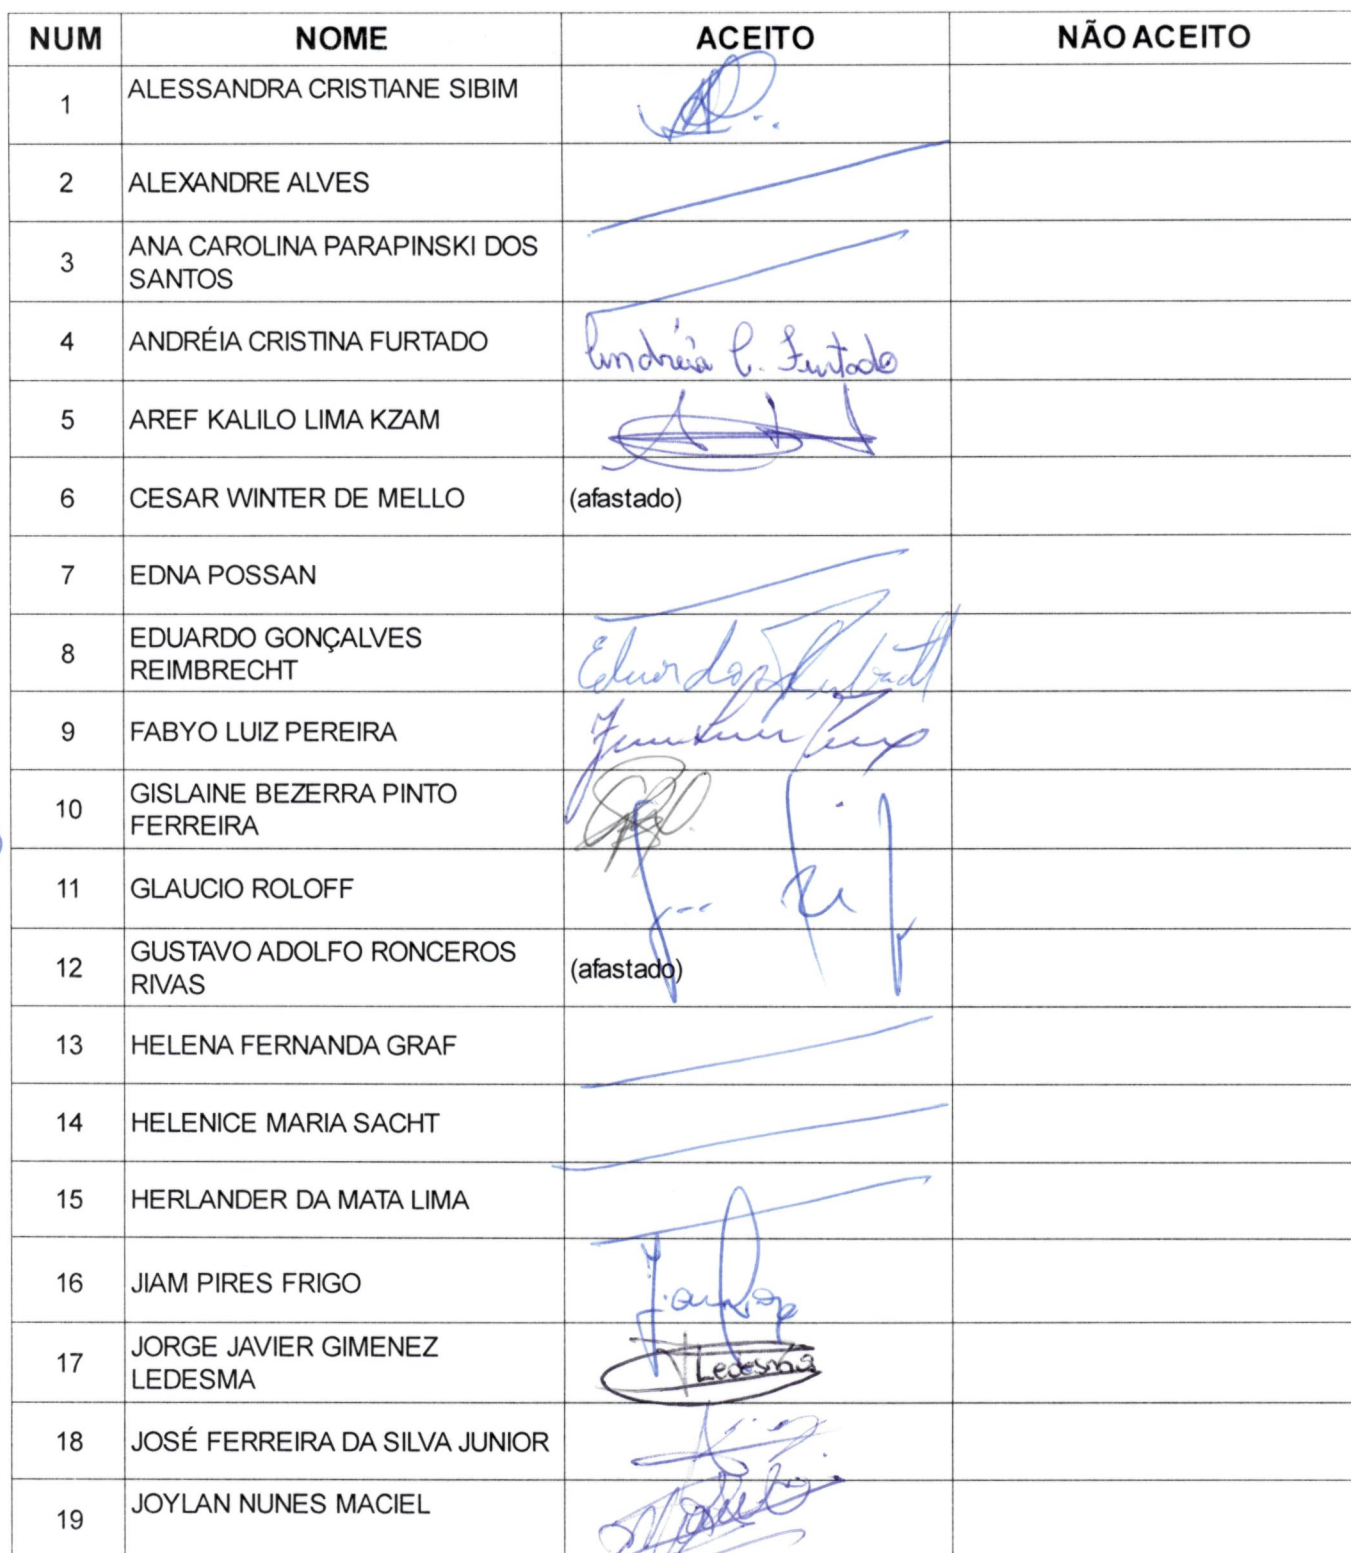 NUM NOME ACEITO NÃO ACEITO
1 ALESSANDRA CRISTIANE SIBIM
2 ALEXANDRE ALVES
3 ANA CAROLINA PARAPINSKI DOS
SANTOS
4 ANDRÉIA CRISTINA FURTADO Andréia C. Furtado
5 AREF KALILO LIMA KZAM
6 CESAR WINTER DE MELLO (afastado)
7 EDNA POSSAN
8 EDUARDO GONÇALVES
REIMBRECHT Eduardo
9 FABYO LUIZ PEREIRA
10 GISLAINE BEZERRA PINTO
FERREIRA
11 GLAUCIO ROLOFF
12 GUSTAVO ADOLFO RONCEROS
RIVAS (afastado)
13 HELENA FERNANDA GRAF
14 HELENICE MARIA SACHT
15 HERLANDER DA MATA LIMA
16 JIAM PIRES FRIGO
17 JORGE JAVIER GIMENEZ
LEDESMA Ledesma
18 JOSÉ FERREIRA DA SILVA JUNIOR
19 JOYLAN NUNES MACIEL